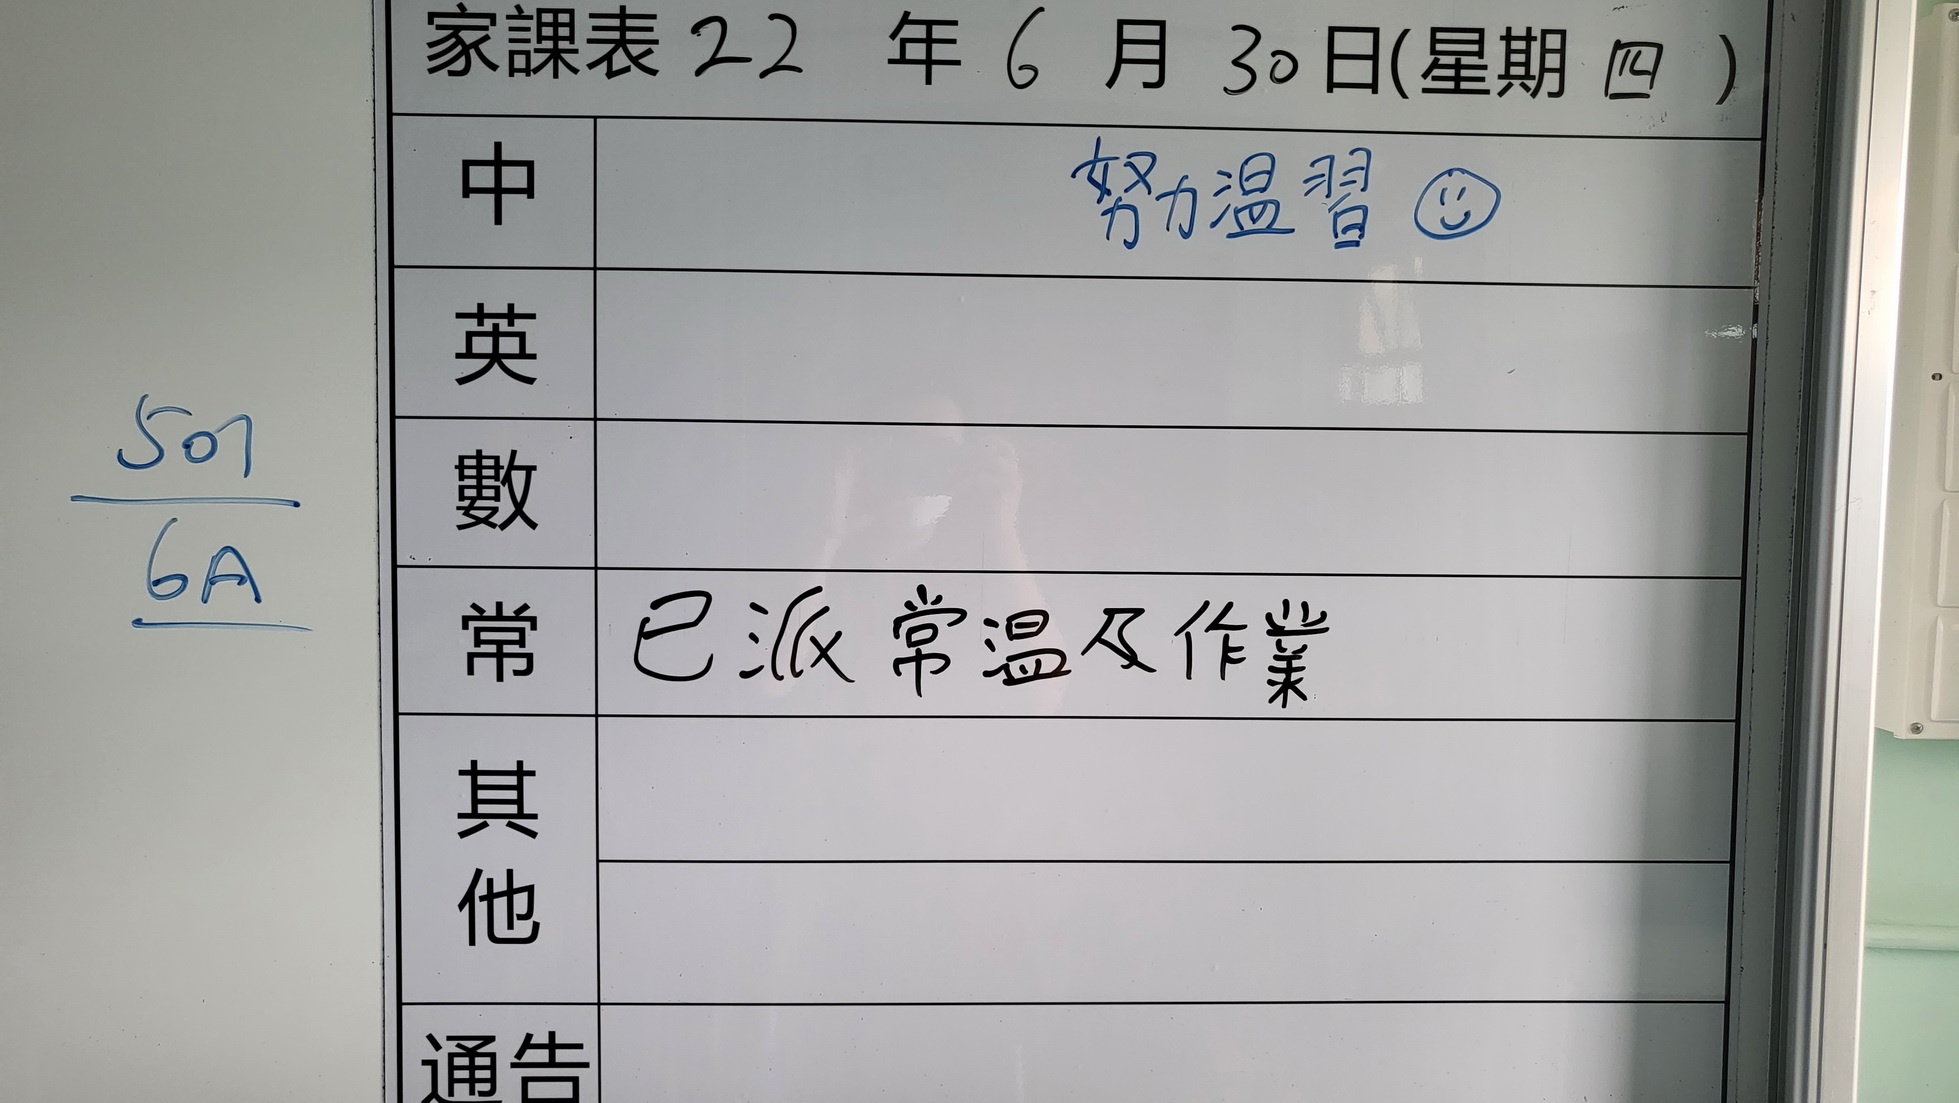 家課表 22 年 6 月 30 日(星期 四 )
中 努力温習
英
數
常 已派常温及作業
其他
通告
501
6A